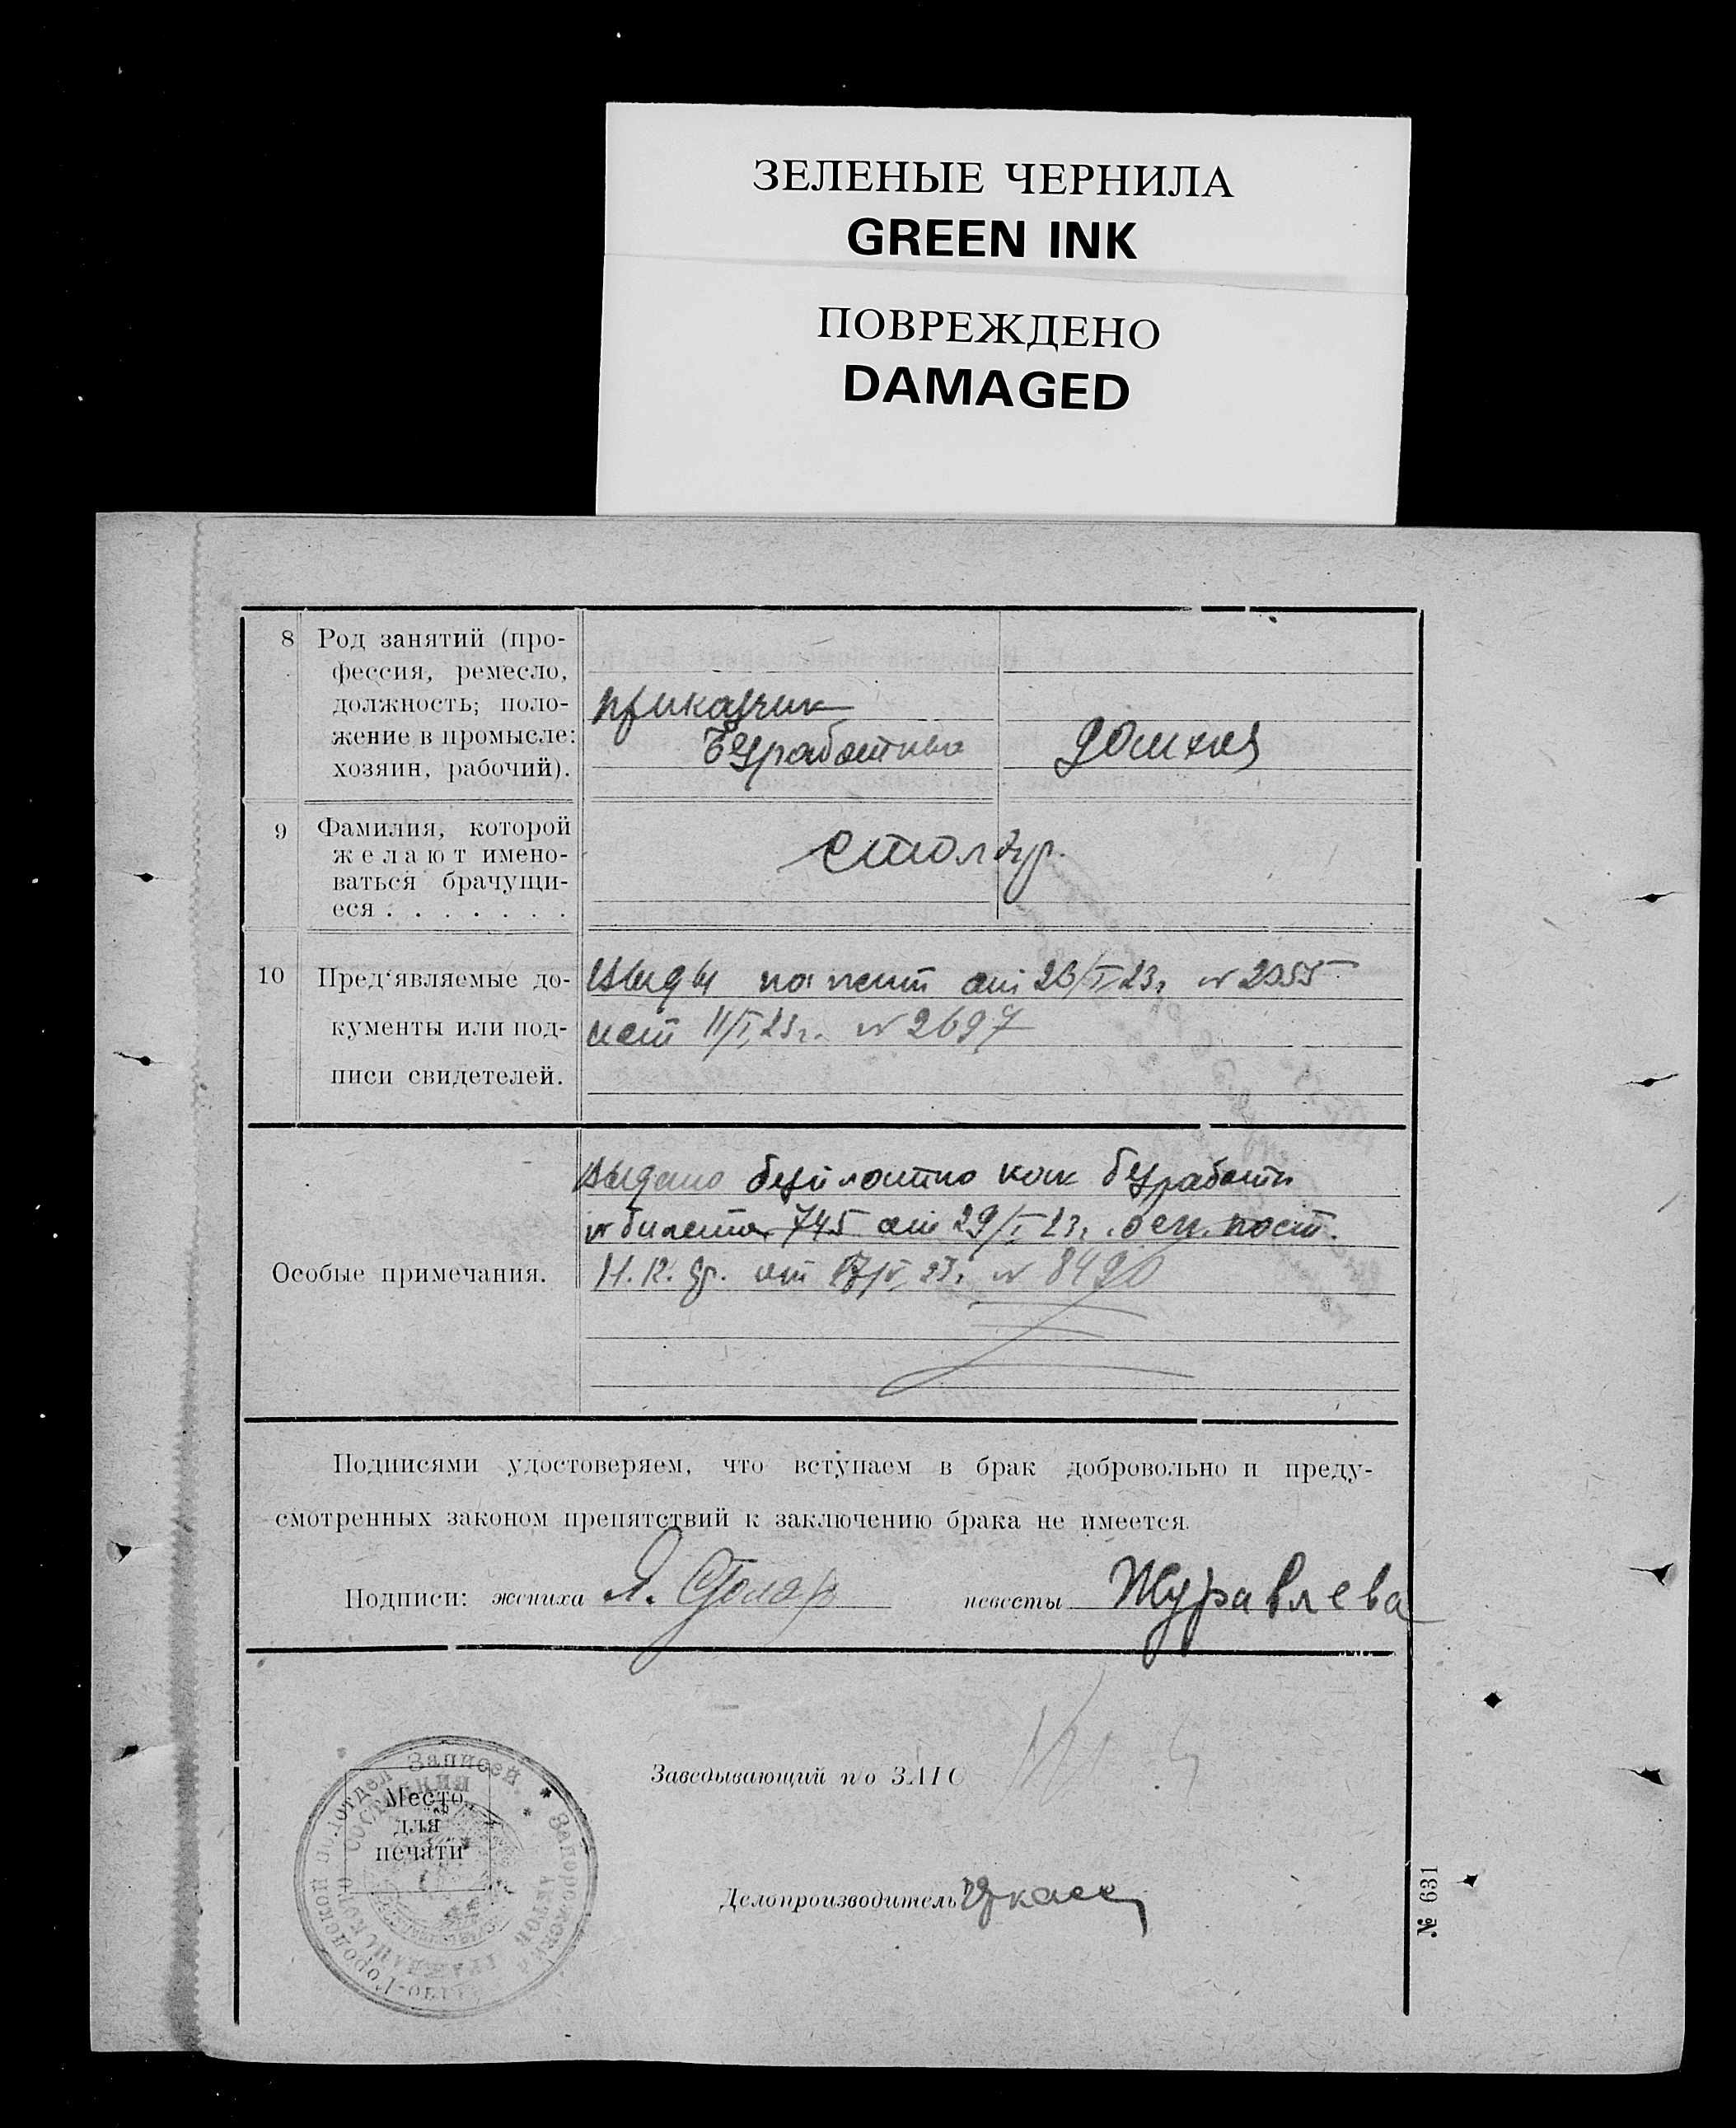 ЗЕЛЕНЫЕ ЧЕРНИЛА
GREEN INK
ПОВРЕЖДЕНО
DAMAGED
8 Род занятий (про-
фессия, ремесло,
должность; поло-
жение в промысле:
хозяин, рабочий).
приказчик
Безработный
домхоз
9 Фамилия, которой
желают имено-
ваться брачущи-
еся . . . . . . .
Столяр.
10 Пред‘являемые до-
кументы или под-
писи свидетелей.
от 23/I 23г № 2055
11/I 23г. № 2697
Особые примечания.
Выдано бесплатно как безработн
№ билета 745 от 29/I 23г. пост.
от 23г № 8490
Подписями удостоверяем, что вступаем в брак добровольно и преду-
смотренных законом препятствий к заключению брака не имеется.
Подписи: жениха Я. Столяр невесты Журавлева
Заведывающий по ЗАГС
Место
для
печати
подотдел Записей
Делопроизводитель
№ 631